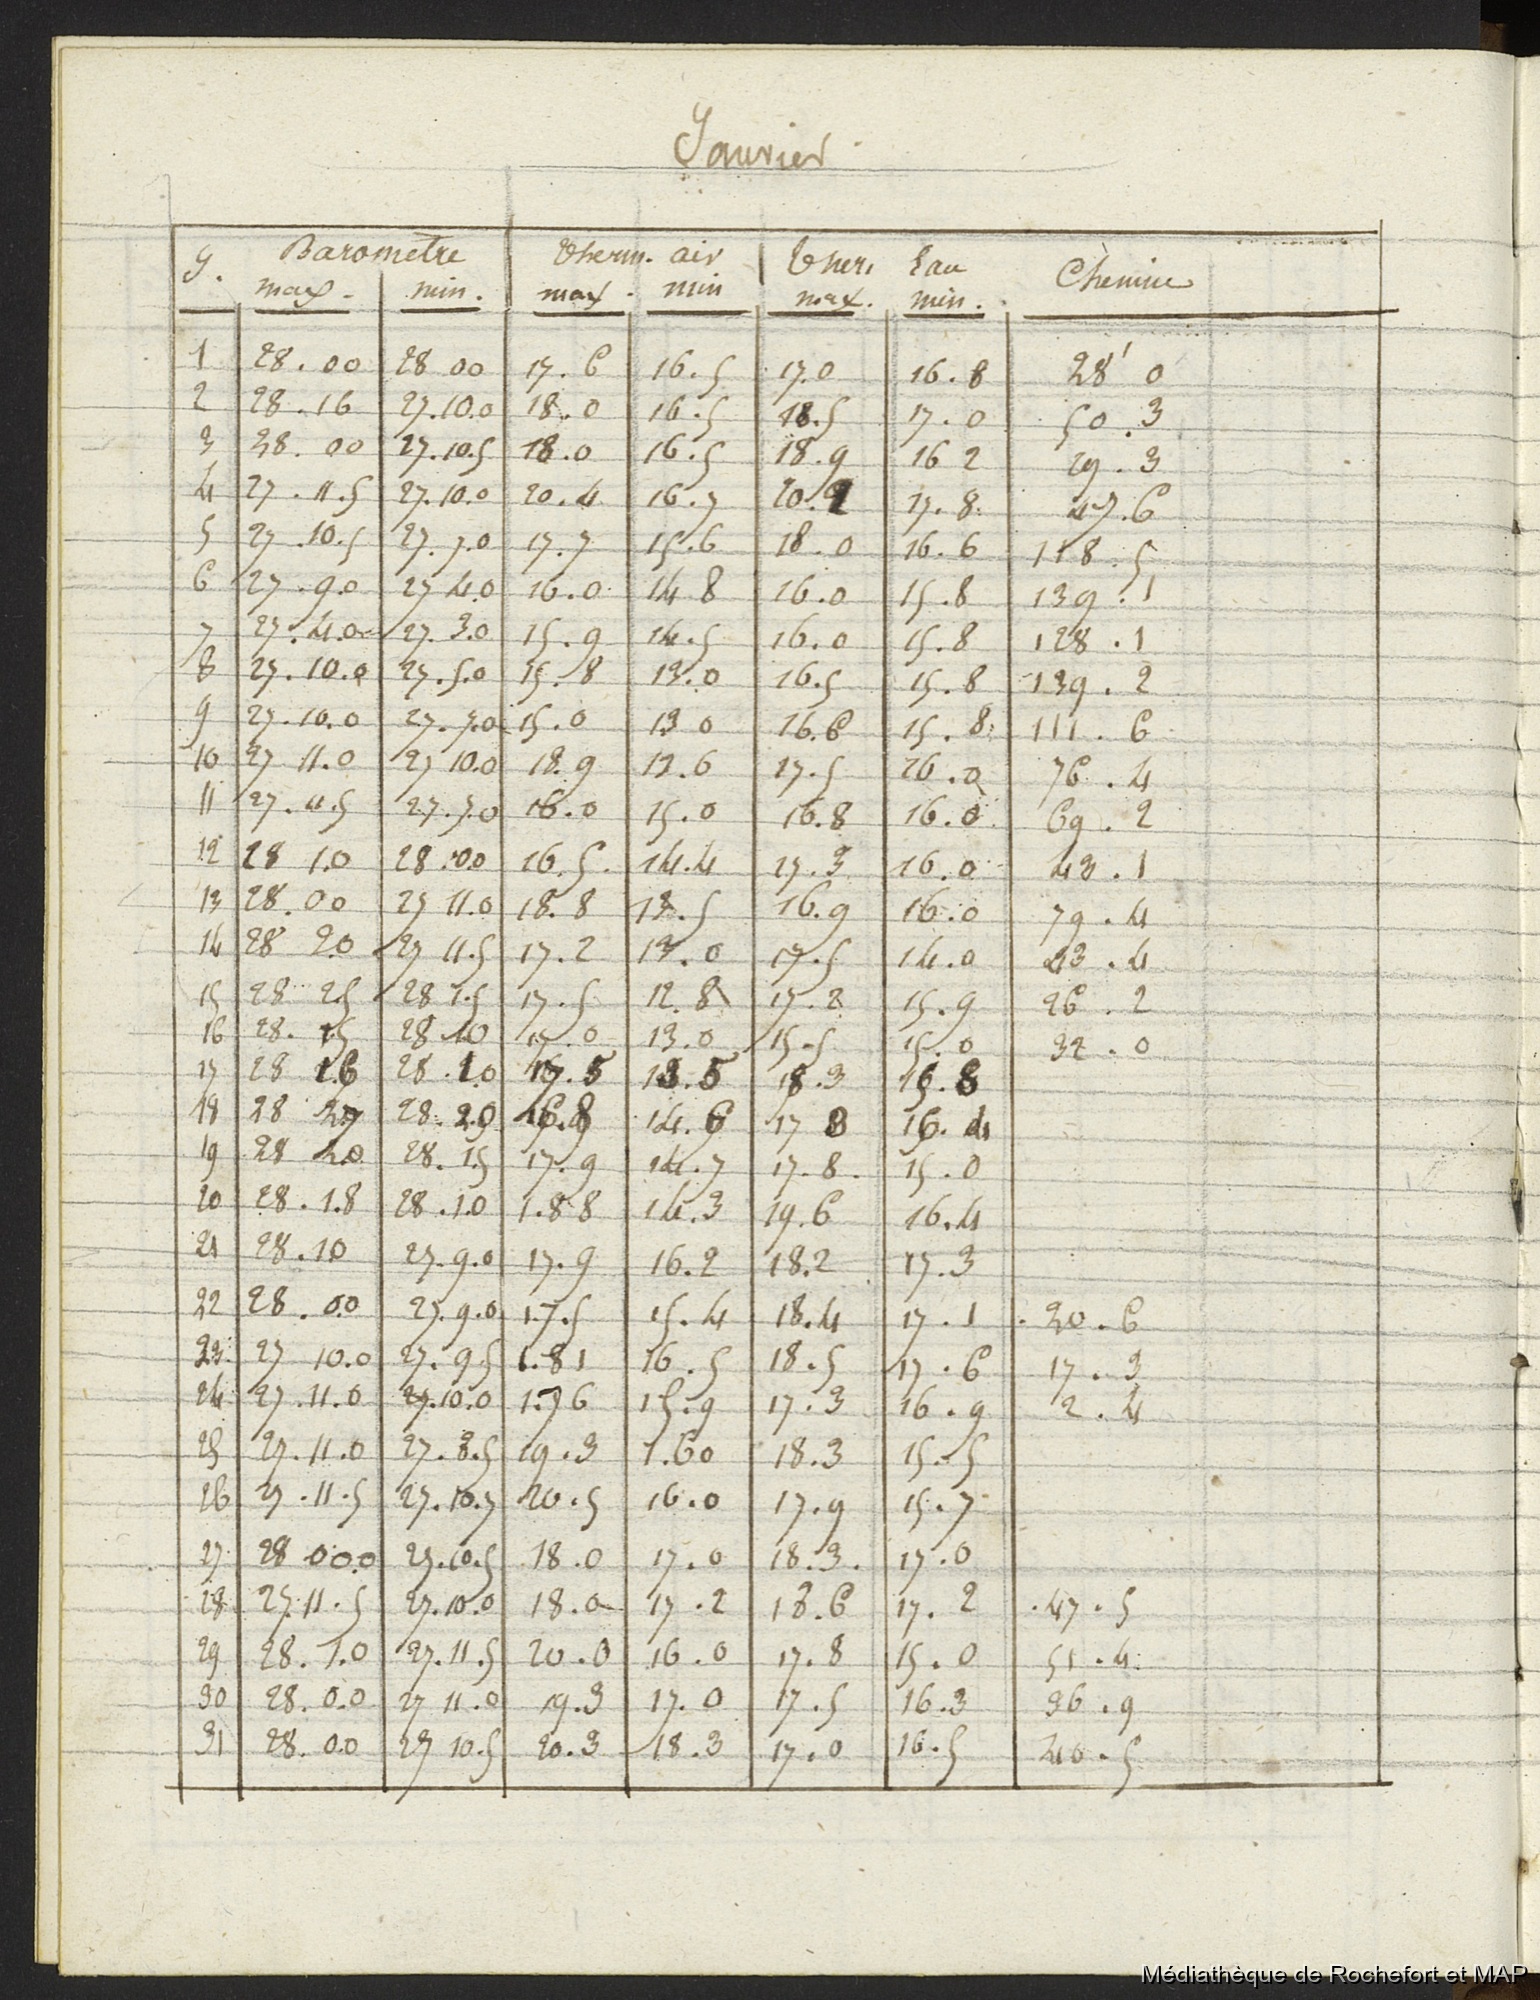 Janvier
J. Barometre Therm. air Ther. Eau Chemin
max. min. max. min max. min.
1 28.00 28 00 17.6 16.5 17.0 16.8 28' 0
2 28.16 27.10.0 18.0 16.5 18.5 17.0 50.3
3 28.00 27.10.5 18.0 16.5 18.9 16 2 29.3
4 27.11.5 27.10.0 20.4 16.7 17.8 47.6
5 27.10.5 27.7.0 17.7 15.6 18.0 16.6 118.5
6 27.9.0 27 4.0 16.0 14 8 16.0 15.8 139.1
7 27.4.0 27.3.0 15.9 14.5 16.0 15.8 128.1
8 27.10.0 27.5.0 15.8 13.0 16.5 15.8 139.2
9 27.10.0 27.7.0 15.0 13 0 16.6 15.8 111.6
10 27 11.0 27 10.0 18.9 13.6 17.5 16.0 76.4
11 27.11.5 27.7.0 16.0 15.0 16.8 16.0 69.2
12 28 1.0 28.00 16.5 14.4 17.3 16.0 43.1
13 28.00 27 11.0 18.8 13.5 16.9 16.0 79.4
14 28 2.0 27 11.5 17.2 13.0 17.5 14.0 43.4
15 28 2.5 28 1.5 17.5 12.8 17.2 15.9 26.2
16 28.1.5 28 1.0 17.0 13.0 15.5 15.0 32.0
17 28 1.6 28.1.0 13.5 18.3 15.8
18 28 2.7 28.2.0 16.8 14.6 17 8 16.4
19 28 2.0 28.1.5 17.9 14.7 17.8. 15.0
20 28.1.8 28.1.0 1.88 14.3 19.6 16.4
21 28.10 27.9.0 17.9 16.2 18.2 17.3
22 28.0.0 27.9.0 1.7.5 15.4 18.4 17.1 20.6
23 27 10.0 27.9.5 1.81 16.5 18.5 17.6 17.3
24 27.11.0 27.10.0 1.76 15.9 17.3 16.9 2.4
25 27.11.0 27.8.5 19.3 1.60 18.3 15.5
26 27.11.5 27.10.7 20.5 16.0 17.9 15.7
27 28 00.0 27.10.5 18.0 17.0 18.3. 17.0
28 27.11.5 27.10.0 18.0 17.2 18.6 17.2 47.5
29 28.1.0 27.11.5 20.0 16.0 17.8 15.0 51.4
30 28.0.0 27 11.0 19.3 17.0 17.5 16.3 36.9
31 28.0.0 27 10.5 20.3 18.3 17.0 16.5 46.5
Médiathèque de Rochefort et MAP